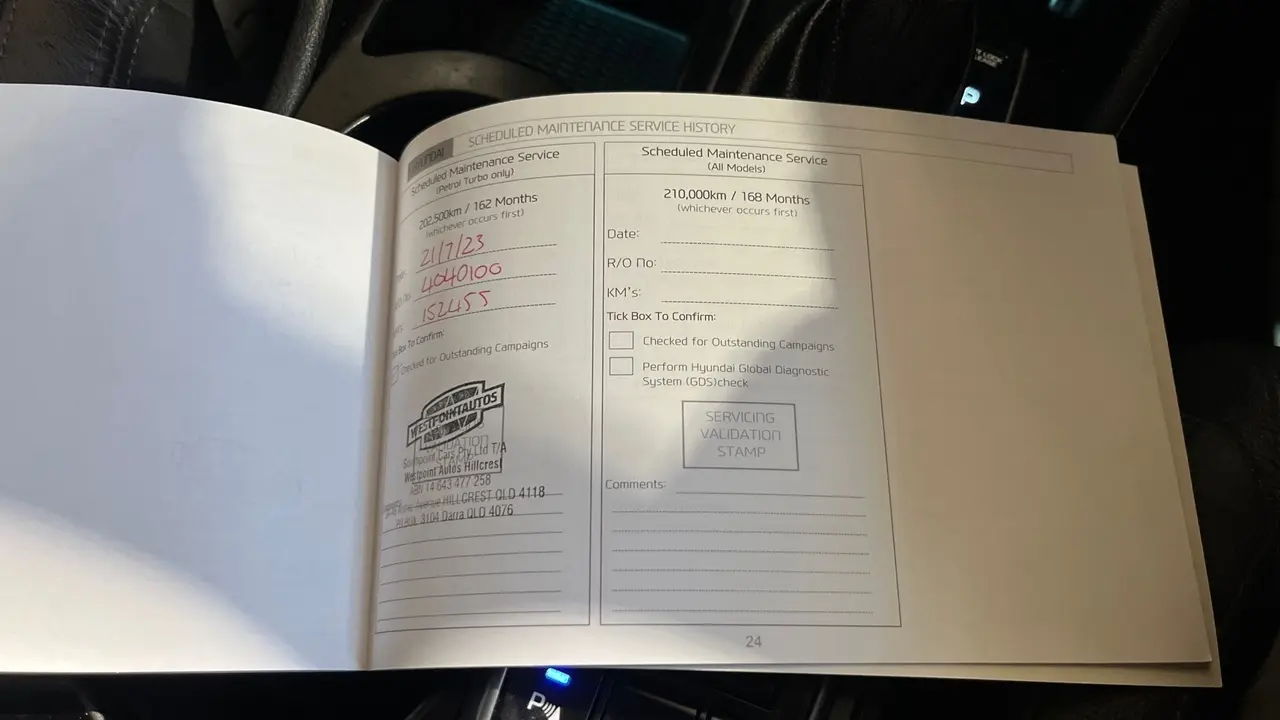 HYUNDAI
SCHEDULED MAINTENANCE SERVICE HISTORY
Scheduled Maintenance Service
(Petrol Turbo only)
202,500km / 162 Months
(whichever occurs first)
21/7/23
4040100
152455
Box To Confirm:
Checked for Outstanding Campaigns
WESTPOINT AUTOS
VALIDATION
STAMP
Southpoint Cars Pty Ltd T/A
Westpoint Autos Hillcrest
ABN 14 643 477 258
Avenue HILLCREST QLD 4118
PO BOX 3104 Darra QLD 4076
Scheduled Maintenance Service
(All Models)
210,000km / 168 Months
(whichever occurs first)
Date:
R/O No:
KM's:
Tick Box To Confirm:
Checked for Outstanding Campaigns
Perform Hyundai Global Diagnostic
System (GDS)check
SERVICING
VALIDATION
STAMP
Comments:
24
P
P